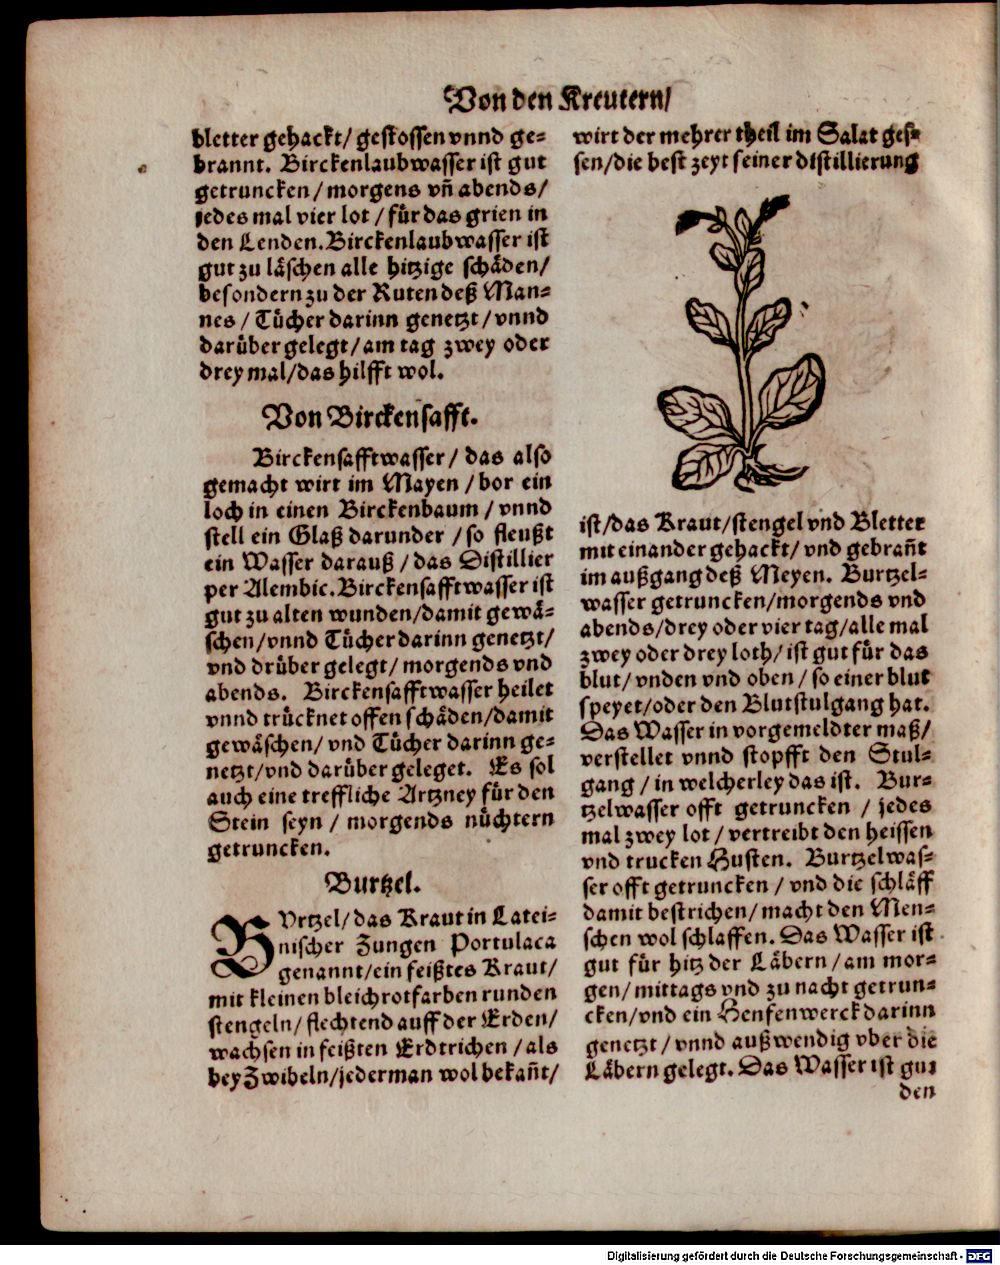 Von den Kreutern/
bletter gehackt/ gestossen vnnd ge=
brannt. Birckenlaubwasser ist gut
getruncken / morgens vñ abends/
jedes mal vier lot / für das grien in
den Lenden. Birckenlaubwasser ist
gut zu läschen alle hitzige schäden/
besondern zu der Ruten deß Man=
nes / Tücher darinn genetzt / vnnd
darüber gelegt / am tag zwey oder
drey mal/das hilfft wol.
Von Birckensafft.
Birckensafftwasser / das also
gemacht wirt im Mayen / bor ein
loch in einen Birckenbaum / vnnd
stell ein Glaß darunder / so fleußt
ein Wasser darauß / das Distillier
per Alembic. Birckensafftwasser ist
gut zu alten wunden/damit gewä=
schen/vnnd Tücher darinn genetzt/
vnd drüber gelegt / morgends vnd
abends. Birckensafftwasser heilet
vnnd trücknet offen schäden/damit
gewäschen/ vnd Tücher darinn ge=
netzt/vnd darüber geleget. Es sol
auch eine treffliche Artzney für den
Stein seyn / morgends nüchtern
getruncken.
Burtzel.
BVrtzel/das Kraut in Latei=
nischer Zungen Portulaca
genannt/ein feißtes Kraut/
mit kleinen bleichrotfarben runden
stengeln/ flechtend auff der Erden/
wachsen in feißten Erdtrichen / als
bey Zwibeln/jederman wol bekañt/
wirt der mehrer theil im Salat ges=
sen/die best zeyt seiner distillierung
ist/das Kraut/stengel vnd Bletter
mit einander gehackt/ vnd gebrañt
im außgang deß Meyen. Burtzel=
wasser getruncken/morgends vnd
abends/drey oder vier tag/alle mal
zwey oder drey loth/ ist gut für das
blut/ vnden vnd oben / so einer blut
speyet/oder den Blutstulgang hat.
Das Wasser in vorgemeldter maß/
verstellet vnnd stopfft den Stul=
gang / in welcherley das ist. Bur=
tzelwasser offt getruncken / jedes
mal zwey lot / vertreibt den heissen
vnd trucken Husten. Burtzelwas=
ser offt getruncken / vnd die schläff
damit bestrichen/ macht den Men=
schen wol schlaffen. Das Wasser ist
gut für hitz der Läbern / am mor=
gen/ mittags vnd zu nacht getrun=
cken/vnd ein Henfenwerck darinn
genetzt / vnnd außwendig vber die
Läbern gelegt. Das Wasser ist gut
den
Digitalisierung gefördert durch die Deutsche Forschungsgemeinschaft - DFG